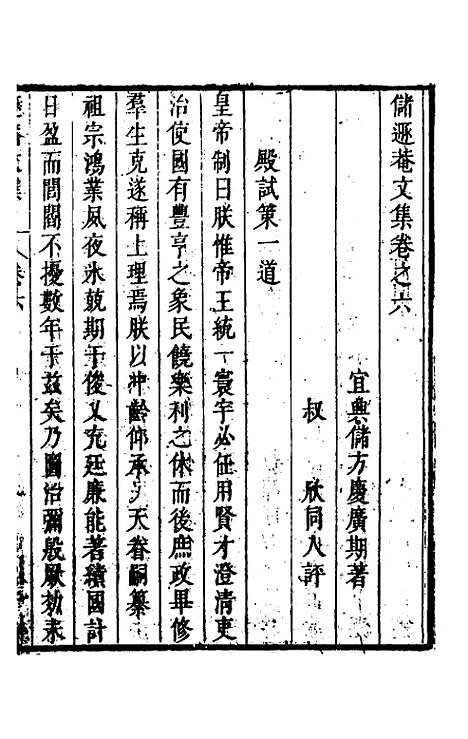 儲遯菴文集卷之六
宜興儲方慶廣期著
叔 欣同人評
殿試策一道
皇帝制曰朕惟帝王統一寰宇必任用賢才澄清吏
治使國有豐亨之象民饒樂利之休而後庶政畢修
羣生克遂稱上理焉朕以冲齡仰承天眷嗣纂
祖宗鴻業夙夜氷兢期于俊乂充廷廉能著績國計
日盈而閭閻不擾數年于茲矣乃圖治彌殷厥効未
卷六